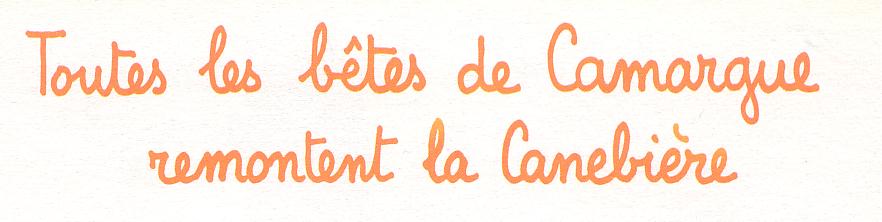 Toutes les bêtes de Camargue
remontent la Canebière